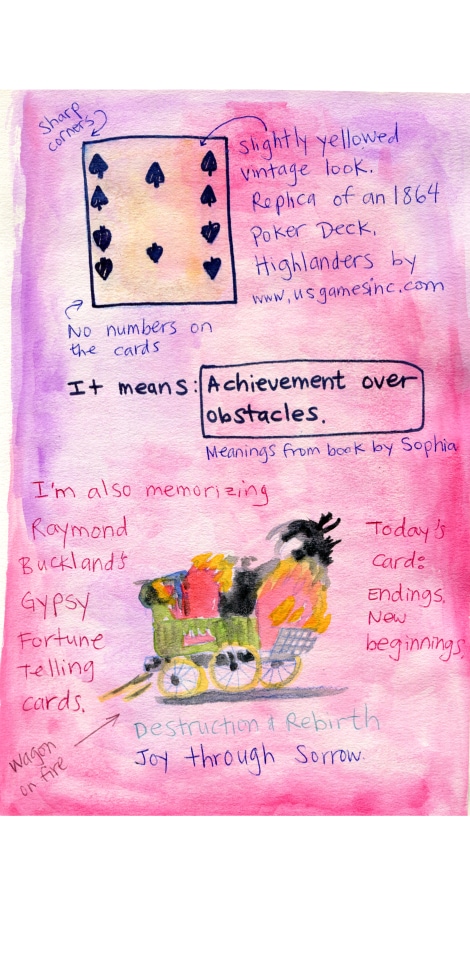 Sharp
corners
slightly yellowed
vintage look.
Replica of an 1864
Poker Deck,
Highlanders by
www.usgamesinc.com
No numbers on
the cards
It means: Achievement over
obstacles.
Meanings from book by Sophia
I'm also memorizing
Raymond
Buckland's
Gypsy
Fortune
Telling
cards.
Today's
Card:
Endings.
New
beginnings.
Wagon
on fire
Destruction & Rebirth
Joy through Sorrow.